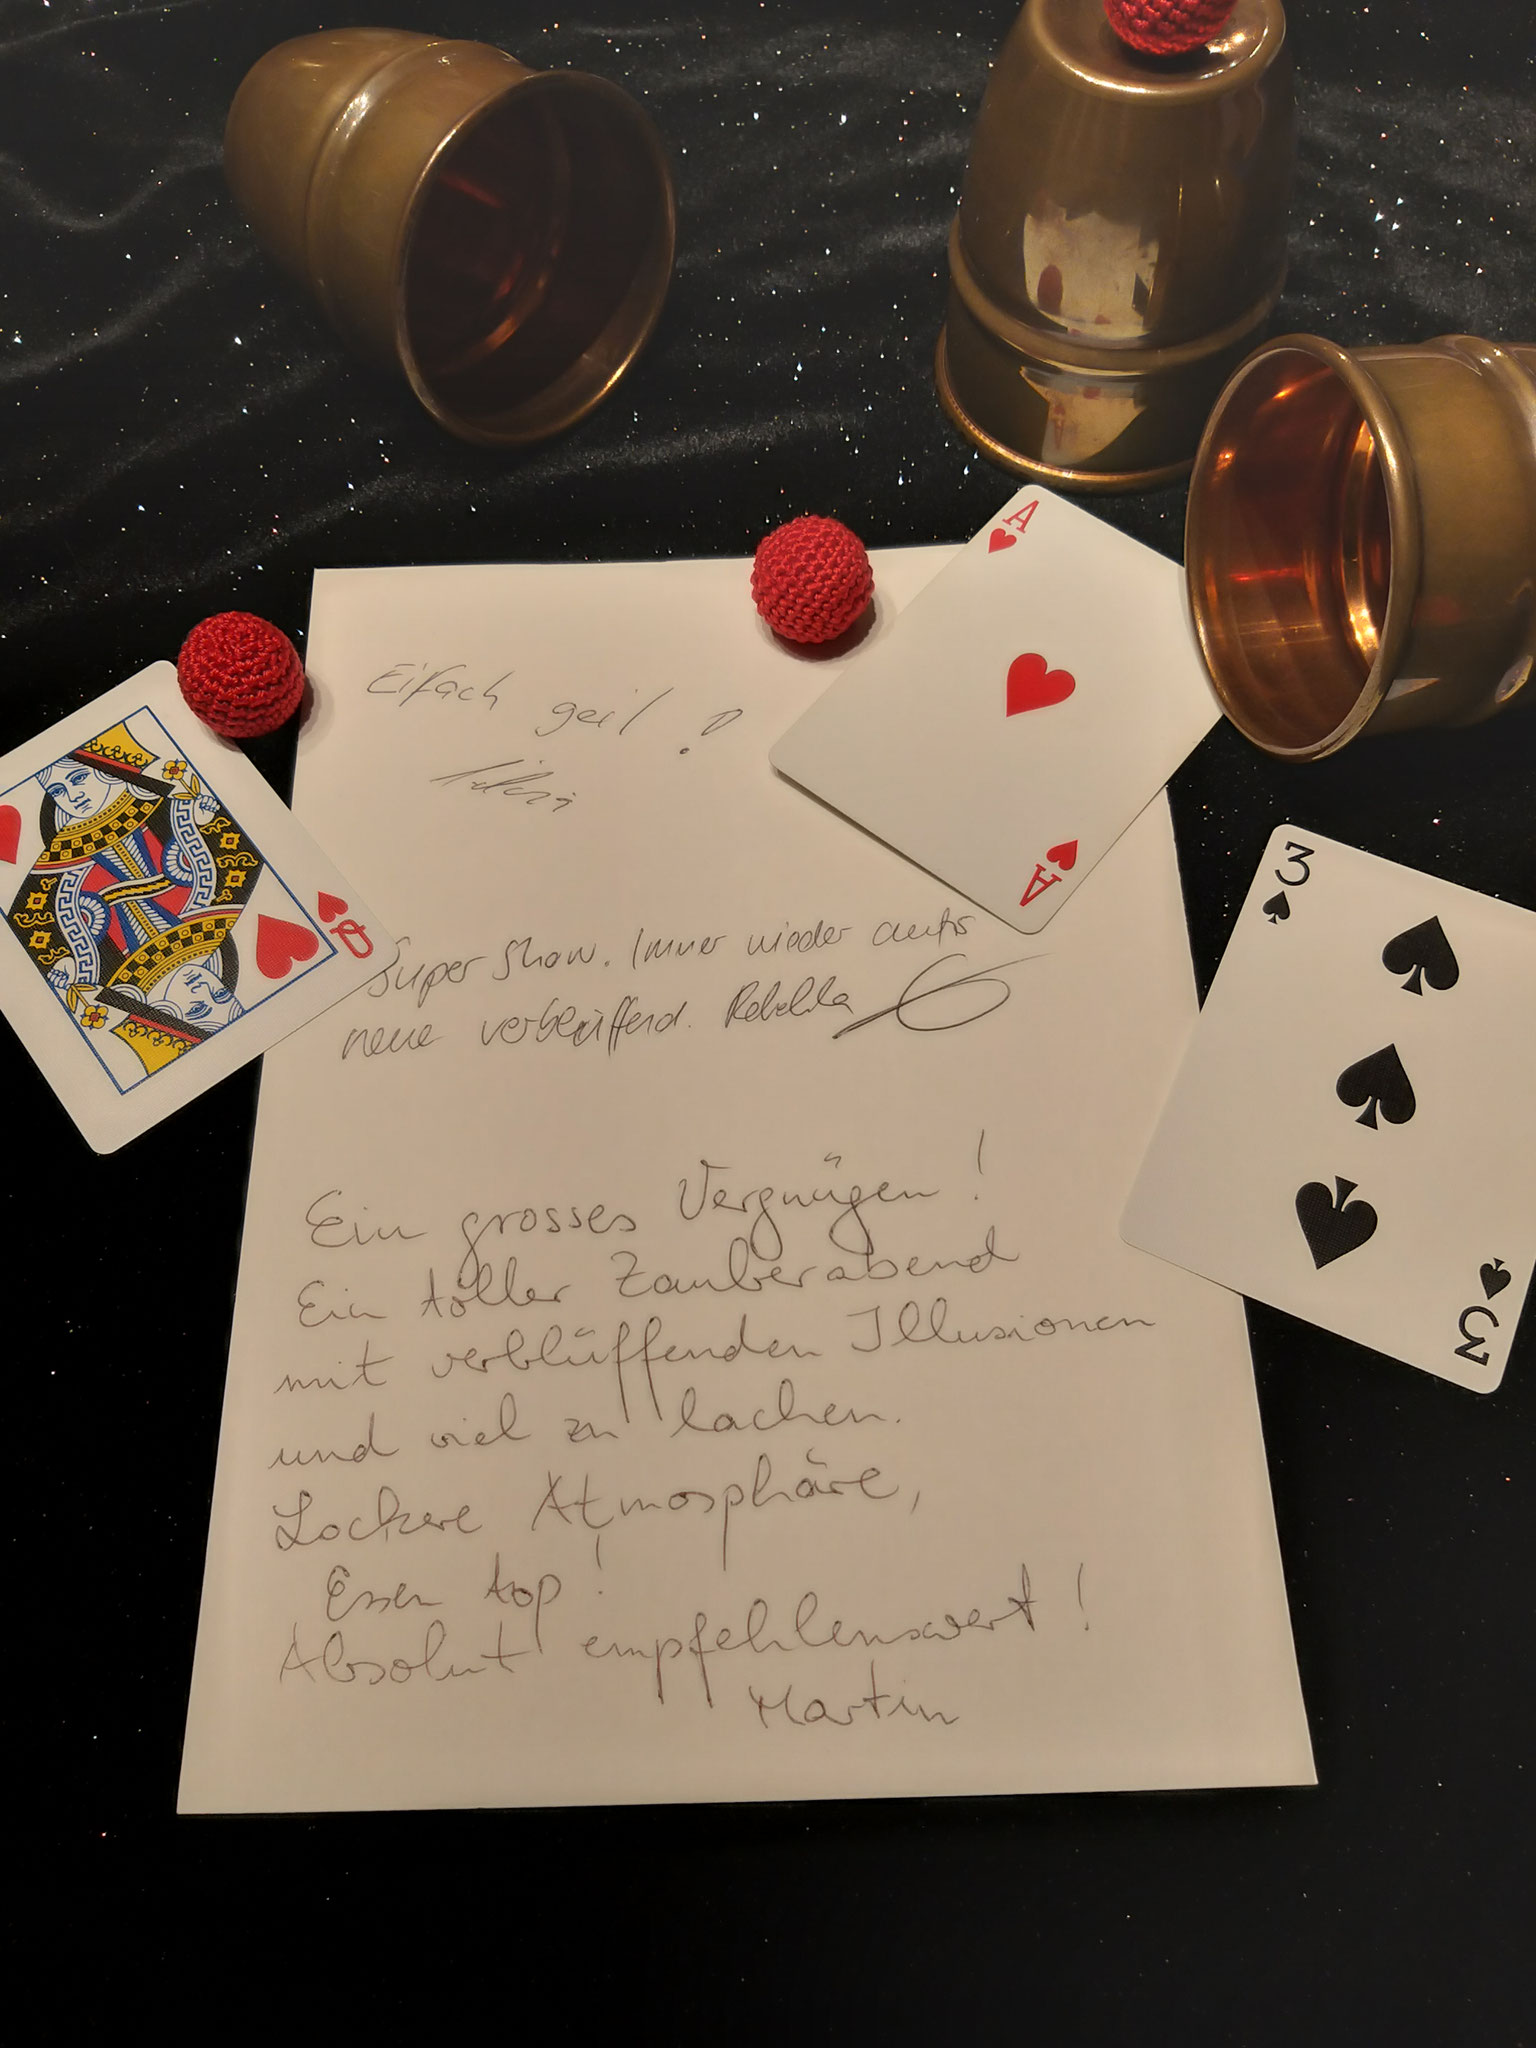 A
A
Eifach geil !
Q
Super Show. Immer wieder aufs
neue verblüffend. Rebekka
3
3
Ein grosses Vergnügen !
Ein toller Zauberabend
mit verblüffenden Illusionen
und viel zu lachen.
Lockere Atmosphäre,
Essen top !
Absolut empfehlenswert !
Martin